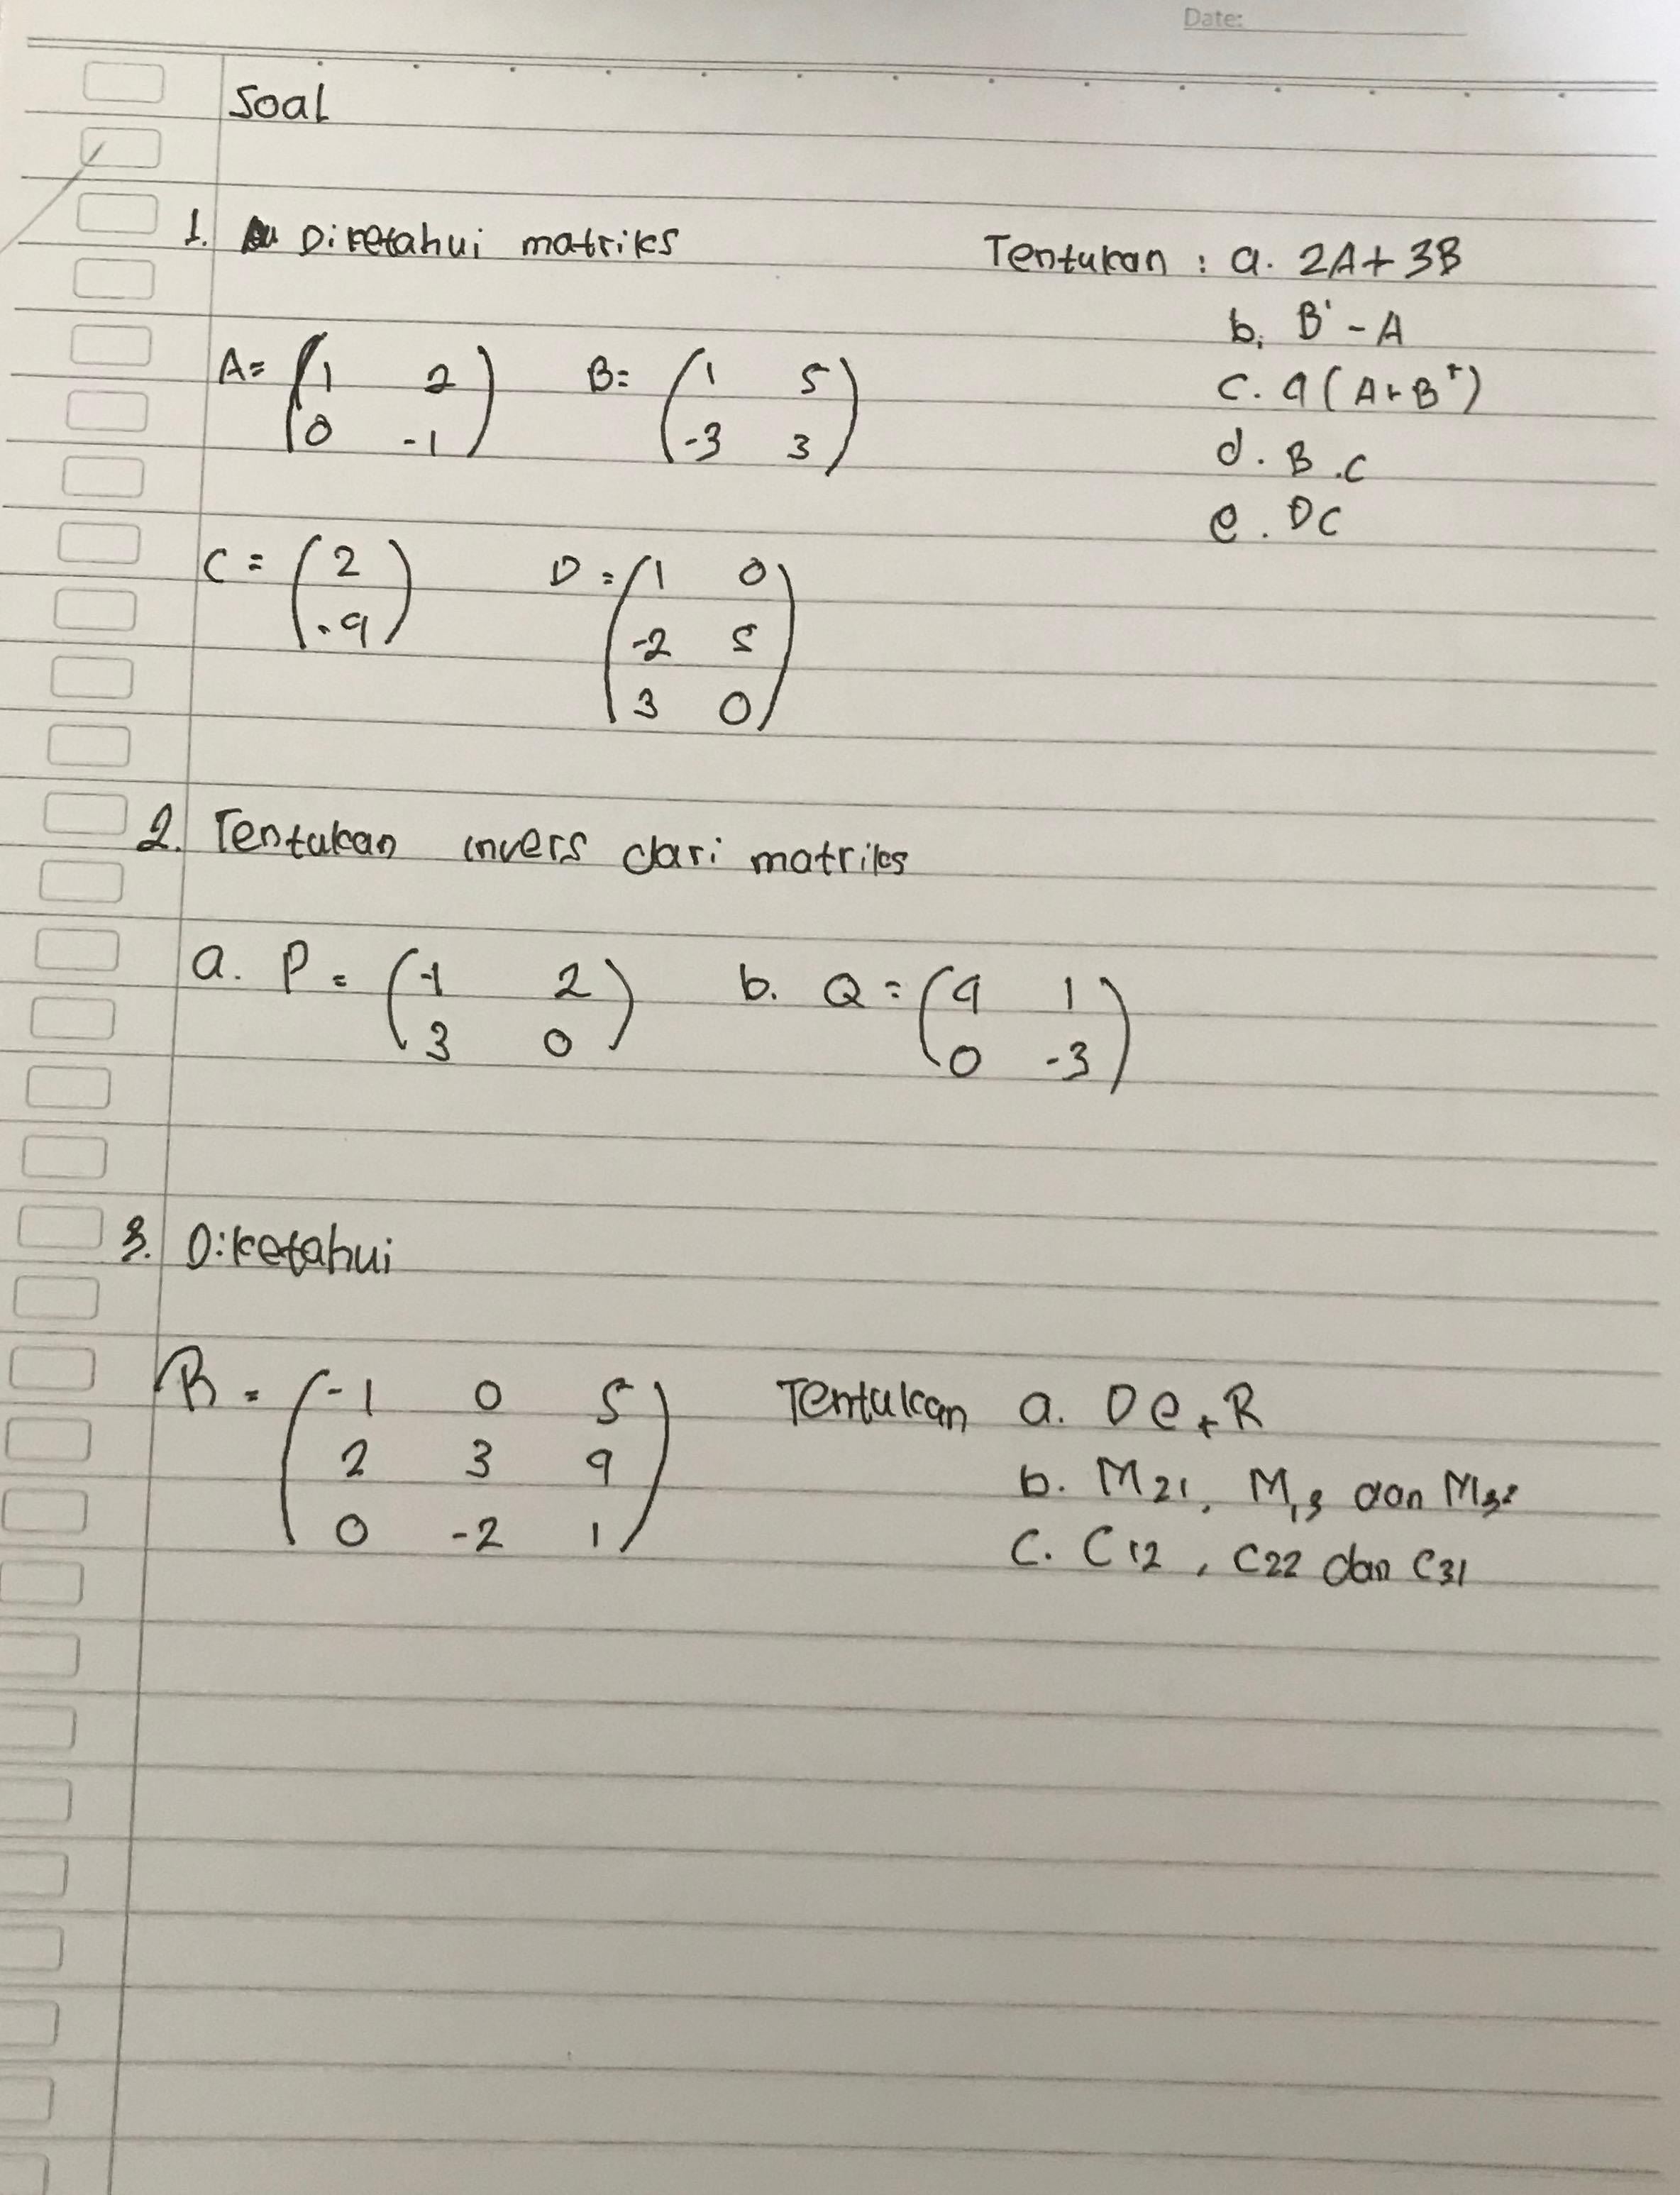 Date:
Soal
1. Diketahui matriks
A= (1 2
0 -1)
B= (1 5
-3 3)
C = (2
-9)
D = (1 0
-2 5
3 0)
Tentukan : a. 2A+ 3B
b. B' - A
c. 9 (A+B^t)
d. B.C
e. DC
2. Tentukan invers dari matriks
a. P = (-1 2
3 0)
b. Q = (9 1
0 -3)
3. Diketahui
R = (-1 0 5
2 3 9
0 -2 1)
Tentukan a. Det R
b. M21, M13 dan M32
c. C12, C22 dan C31